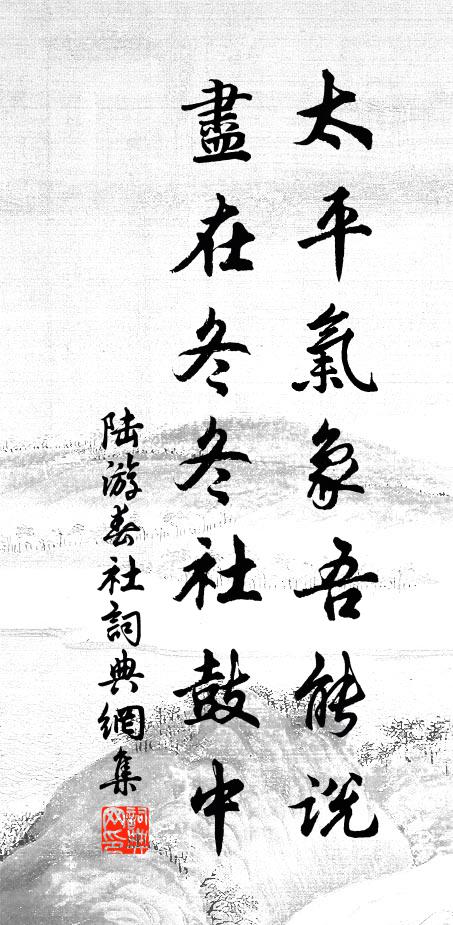 太平氣象吾能說
盡在冬冬社鼓中
陆游春社詞典網集